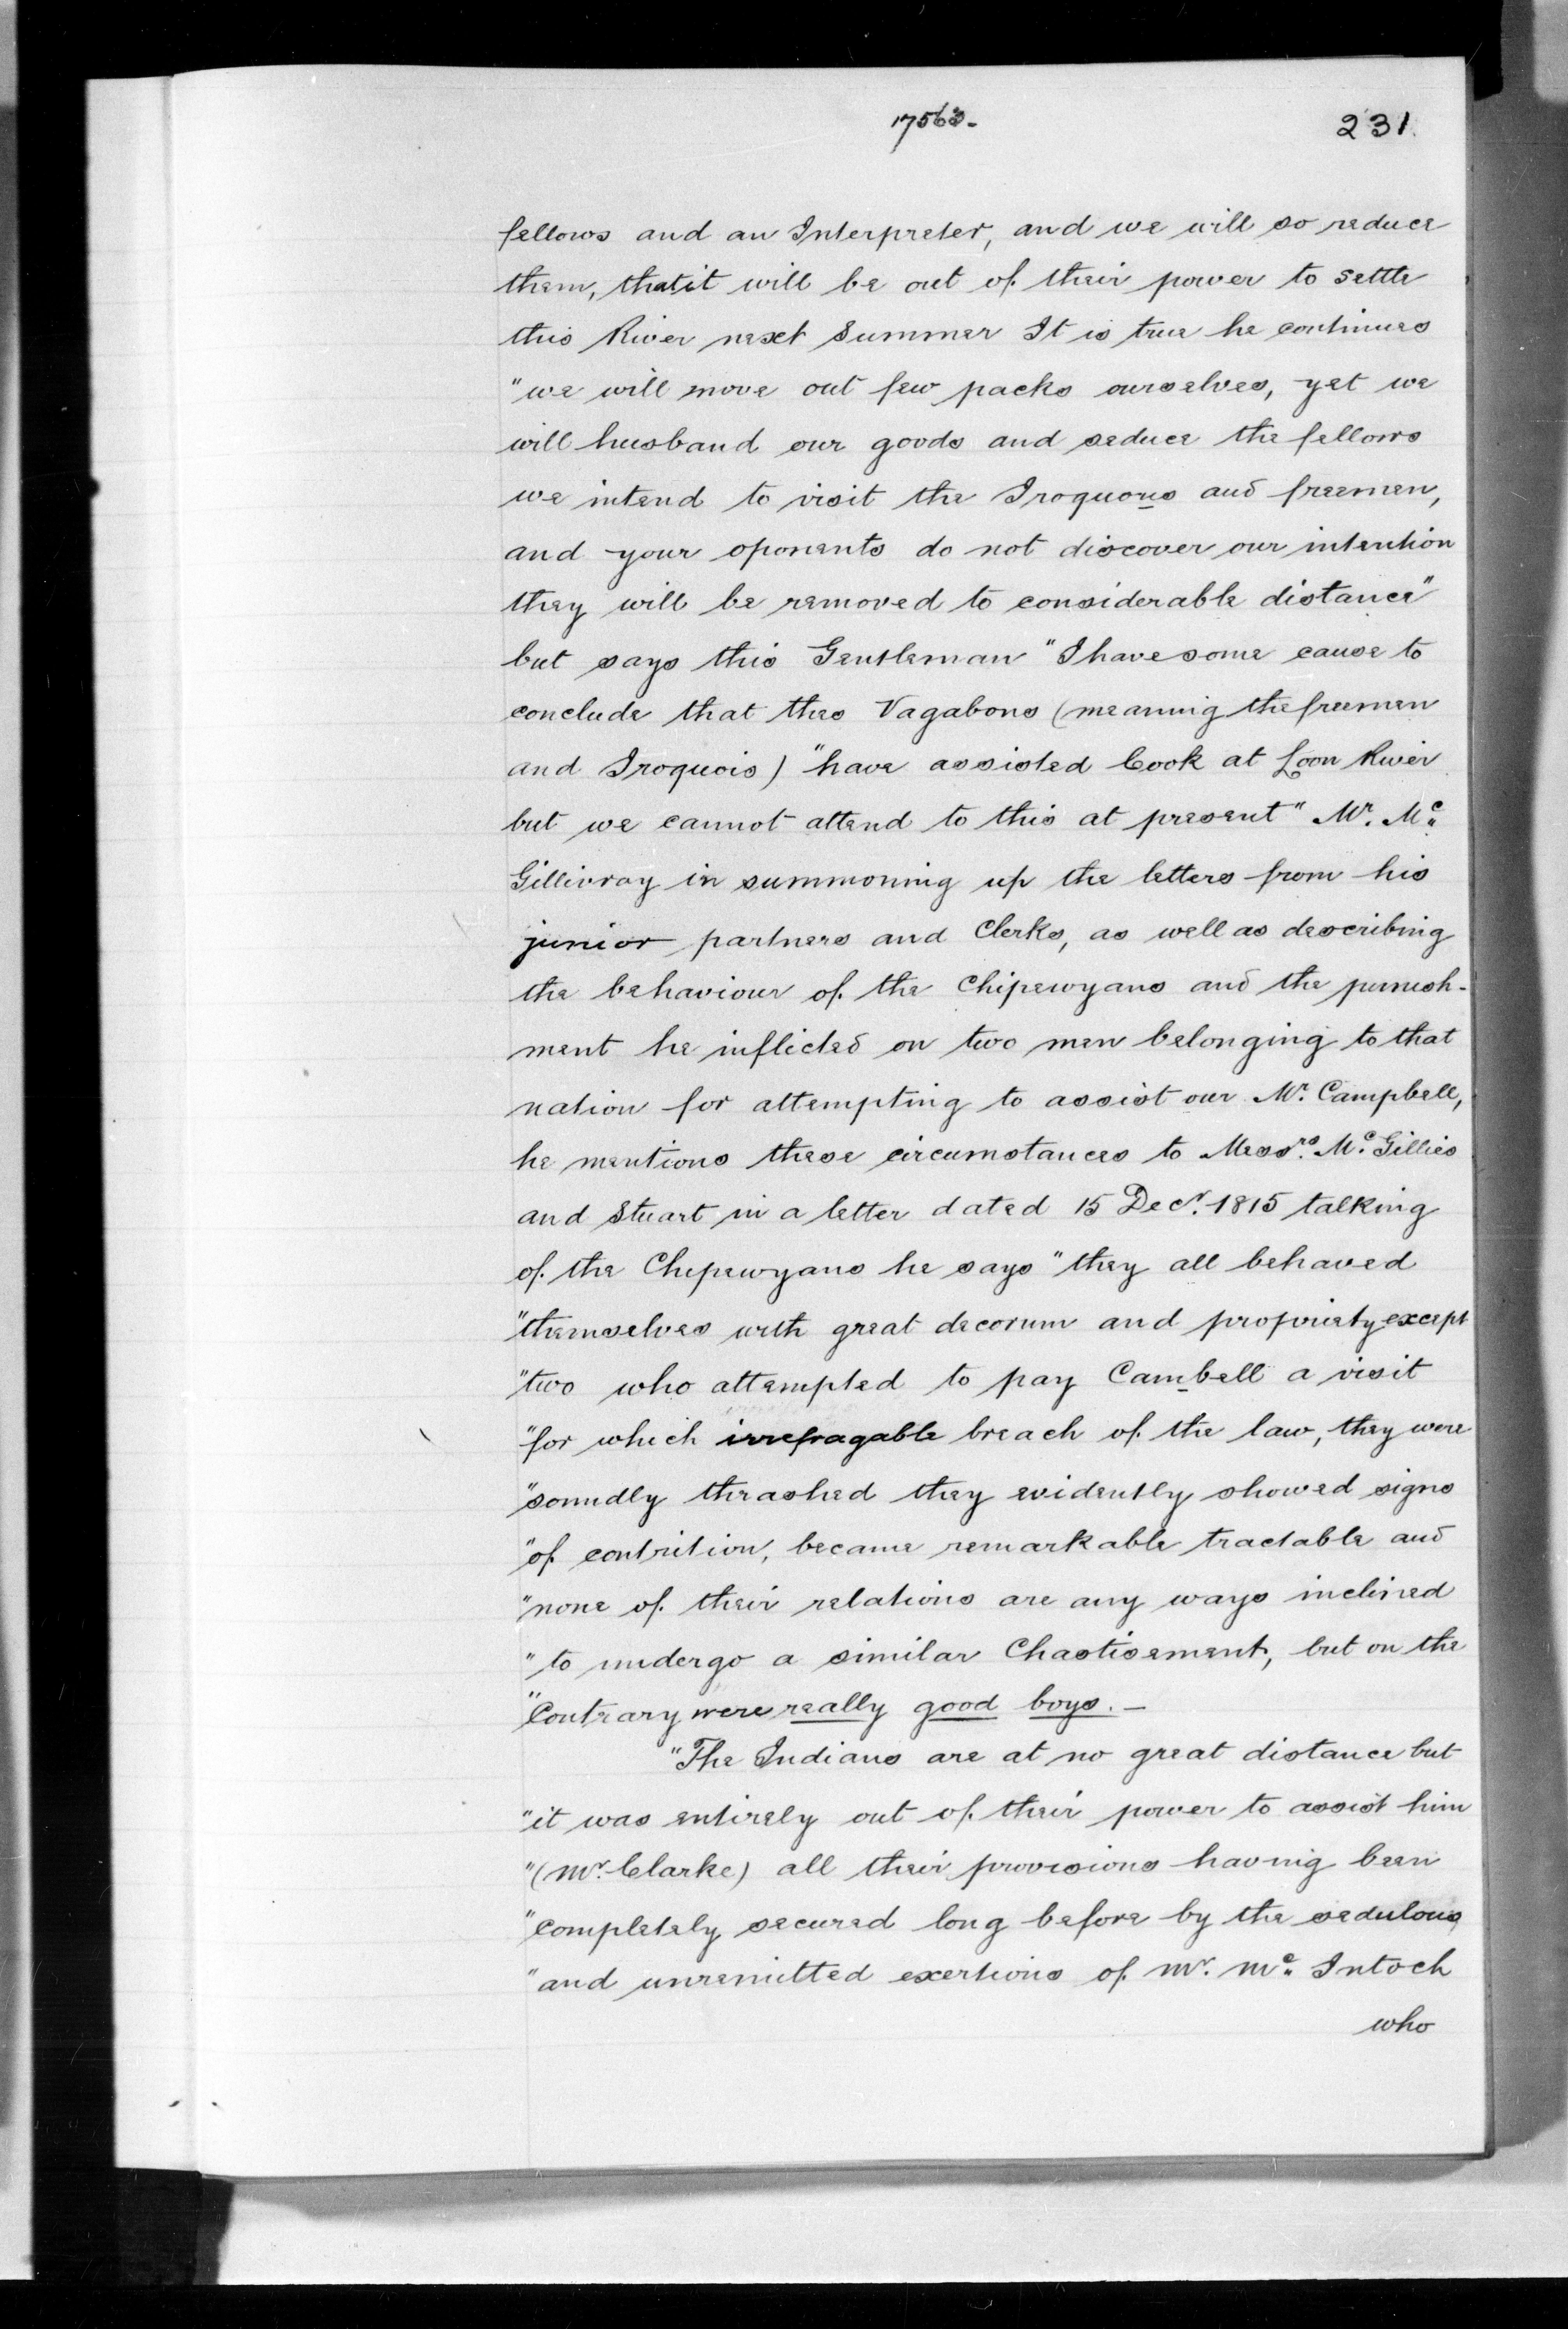 17563-
231.
fellows and an Interpreter, and we will so reduce
them, that it will be out of their power to settle
this River next Summer It is true he continues
"we will move out few packs ourselves, yet we
will husband our goods and seduce the fellows
we intend to visit the Iroquous and freemen,
and your oponents do not discover our intention
they will be removed to considerable distance"
but says this Gentleman "I have some cause to
conclude that thes Vagabons (meaning the freemen
and Iroquois) "have assisted Cook at Loon River
but we cannot attend to this at present" Mr. Mc
Gillivray in summoning up the letters from his
junior partners and Clerks, as well as describing
the behaviour of the Chipewyans and the punish-
ment he inflicted on two men belonging to that
nation for attempting to assist our Mr. Campbell,
he mentions these circumstances to Messrs. Mc. Gillies
and Stuart in a letter dated 15 Decr. 1815 talking
of the Chepewyans he says "they all behaved
"themselves with great decorum and propriety except
"two who attempted to pay Cambell a visit
"for which irrefragable breach of the law, they were
"soundly thrashed they evidently showed signs
"of contrition, became remarkable tractable and
"none of their relations are any ways inclined
"to undergo a similar Chastisement, but on the
"Contrary were really good boys. -
"The Indians are at no great distance but
"it was entirely out of their power to assist him
"(Mr. Clarke) all their provisions having been
"completely secured long before by the sedulous
"and unremitted exertions of Mr. Mc. Intoch
who